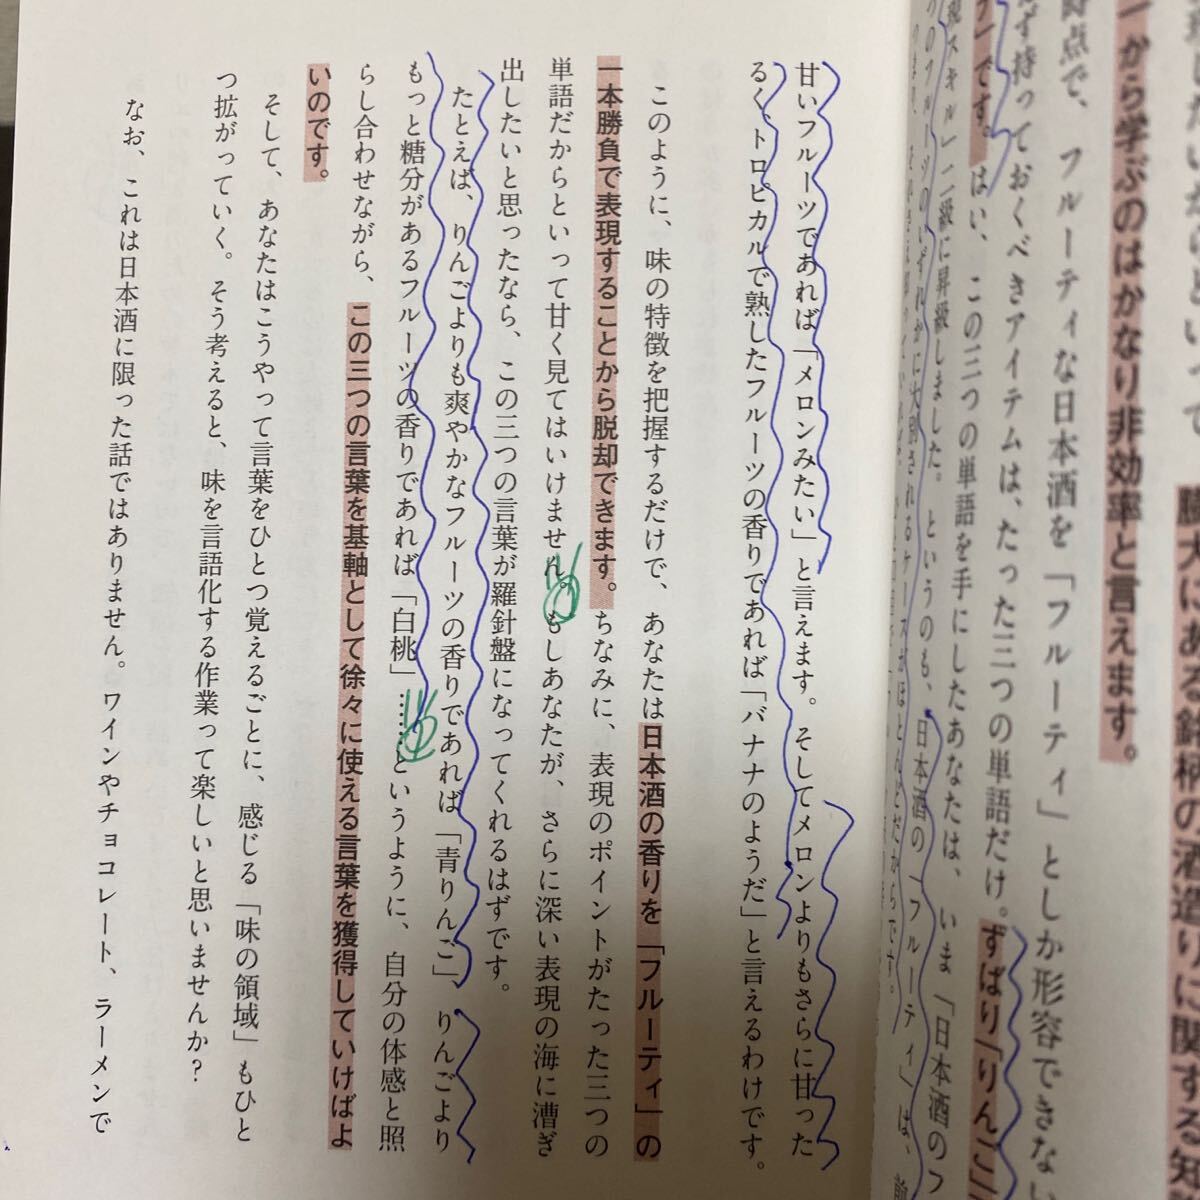 したいからといって、膨大にある銘柄の酒造りに関する知
一から学ぶのはかなり非効率と言えます。
時点で、フルーティな日本酒を「フルーティ」としか形容できない
ず持っておくべきアイテムは、たった三つの単語だけ。ずばり「りんご」
ン」です。はい、この三つの単語を手にしたあなたは、いま「日本酒のフ
現スキル」二級に昇級しました。というのも、日本酒の「フルーティ」は、前
つのフルーツのいずれかに大別されるケースがほとんどだからです。
甘いフルーツであれば「メロンみたい」と言えます。そしてメロンよりもさらに甘った
るく、トロピカルで熟したフルーツの香りであれば「バナナのようだ」と言えるわけです。
このように、味の特徴を把握するだけで、あなたは日本酒の香りを「フルーティ」の
一本勝負で表現することから脱却できます。ちなみに、表現のポイントがたった三つの
単語だからといって甘く見てはいけません。もしあなたが、さらに深い表現の海に漕ぎ
出したいと思ったなら、この三つの言葉が羅針盤になってくれるはずです。
たとえば、りんごよりも爽やかなフルーツの香りであれば「青りんご」、りんごより
もっと糖分があるフルーツの香りであれば「白桃」……というように、自分の体感と照
らし合わせながら、この三つの言葉を基軸として徐々に使える言葉を獲得していけばよ
いのです。
そして、あなたはこうやって言葉をひとつ覚えるごとに、感じる「味の領域」もひと
つ拡がっていく。そう考えると、味を言語化する作業って楽しいと思いませんか？
なお、これは日本酒に限った話ではありません。ワインやチョコレート、ラーメンで